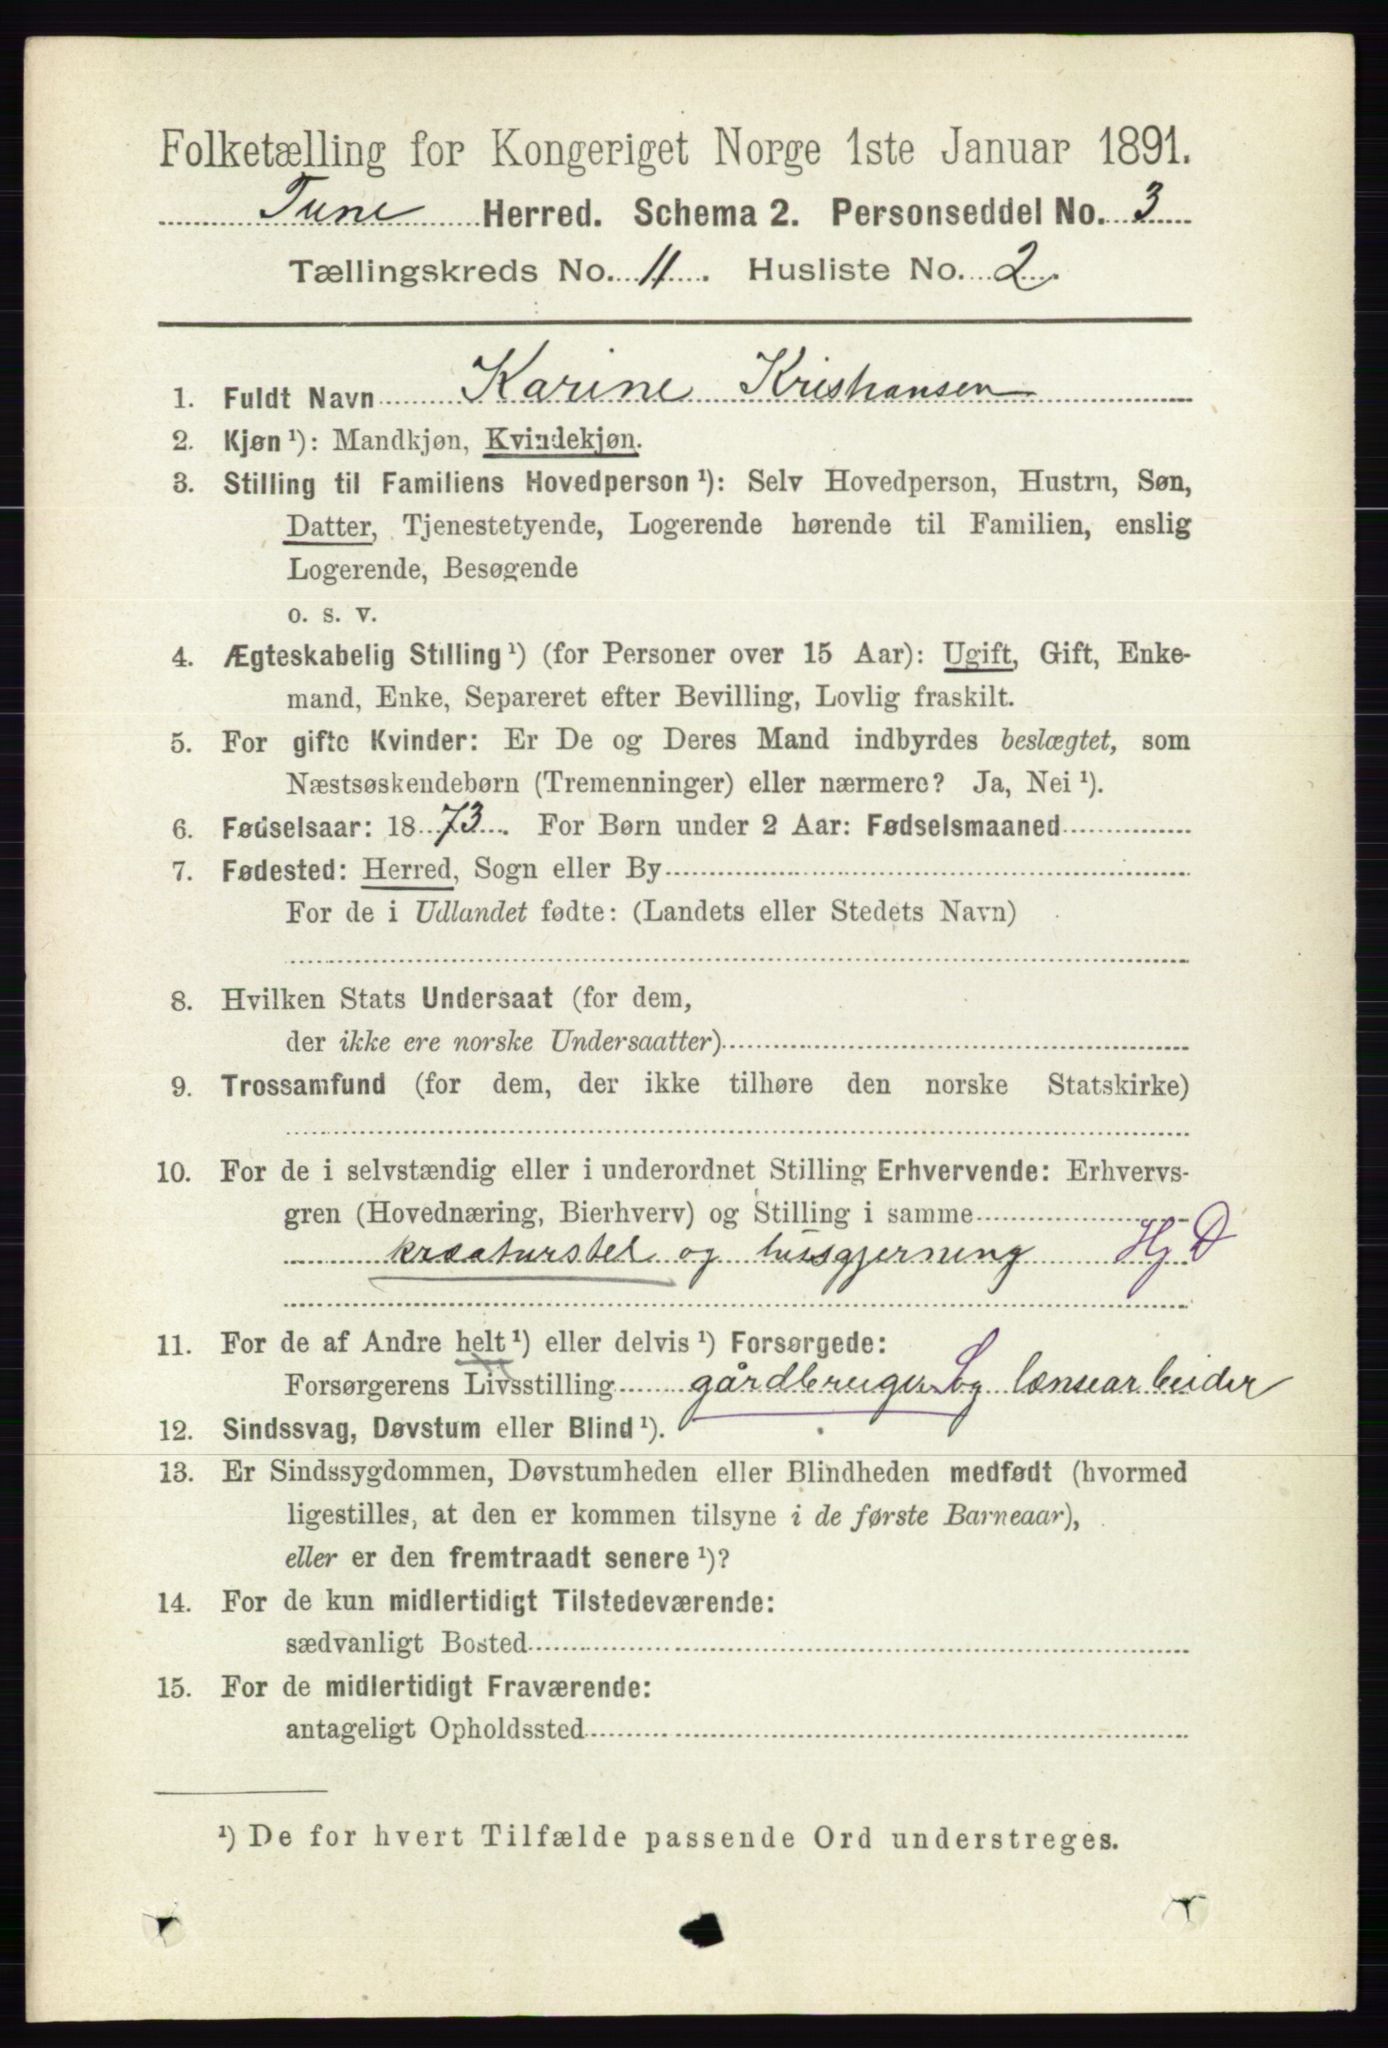 Folketælling for Kongeriget Norge 1ste Januar 1891.
Tune Herred. Schema 2. Personseddel No. 3
Tællingskreds No. 11. Husliste No. 2.
1. Fuldt Navn Karine Kristiansen
2. Kjøn ¹): Mandkjøn, Kvindekjøn.
3. Stilling til Familiens Hovedperson ¹): Selv Hovedperson, Hustru, Søn,
Datter, Tjenestetyende, Logerende hørende til Familien, enslig
Logerende, Besøgende
o. s. v.
4. Ægteskabelig Stilling ¹) (for Personer over 15 Aar): Ugift, Gift, Enke-
mand, Enke, Separeret efter Bevilling, Lovlig fraskilt.
5. For gifte Kvinder: Er De og Deres Mand indbyrdes beslægtet, som
Næstsøskendebørn (Tremenninger) eller nærmere? Ja, Nei ¹).
6. Fødselsaar: 1873. For Børn under 2 Aar: Fødselsmaaned
7. Fødested: Herred, Sogn eller By
For de i Udlandet fødte: (Landets eller Stedets Navn)
8. Hvilken Stats Undersaat (for dem,
der ikke ere norske Undersaatter)
9. Trossamfund (for dem, der ikke tilhøre den norske Statskirke)
10. For de i selvstændig eller i underordnet Stilling Erhvervende: Erhvervs-
gren (Hovednæring, Bierhverv) og Stilling i samme
kreaturstel og husgjerning Hj D
11. For de af Andre helt ¹) eller delvis ¹) Forsørgede:
Forsørgerens Livsstilling gårdbruger og lænsearbeider
12. Sindssvag, Døvstum eller Blind ¹).
13. Er Sindssygdommen, Døvstumheden eller Blindheden medfødt (hvormed
ligestilles, at den er kommen tilsyne i de første Barneaar),
eller er den fremtraadt senere ¹)?
14. For de kun midlertidigt Tilstedeværende:
sædvanligt Bosted
15. For de midlertidigt Fraværende:
antageligt Opholdssted
¹) De for hvert Tilfælde passende Ord understreges.